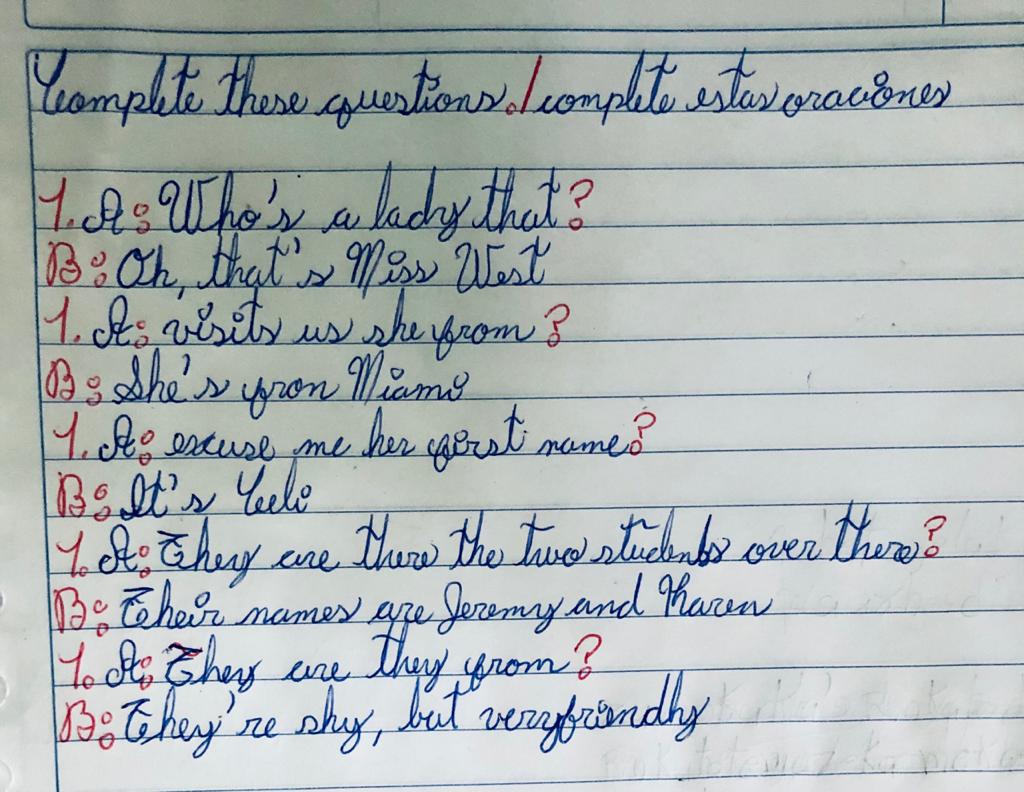 Complete these questions./complete estas oraciones
1. A: Who's a lady that?
B: Oh, that's Miss West
1. A: visits us she from?
B: She's fron Miami
1. A: excuse me her first name?
B: It's Celi
1. A: They are there the two students over there?
B: Their names are Jeremy and Karen
1. A: They are they from?
B: They're shy, but very friendly